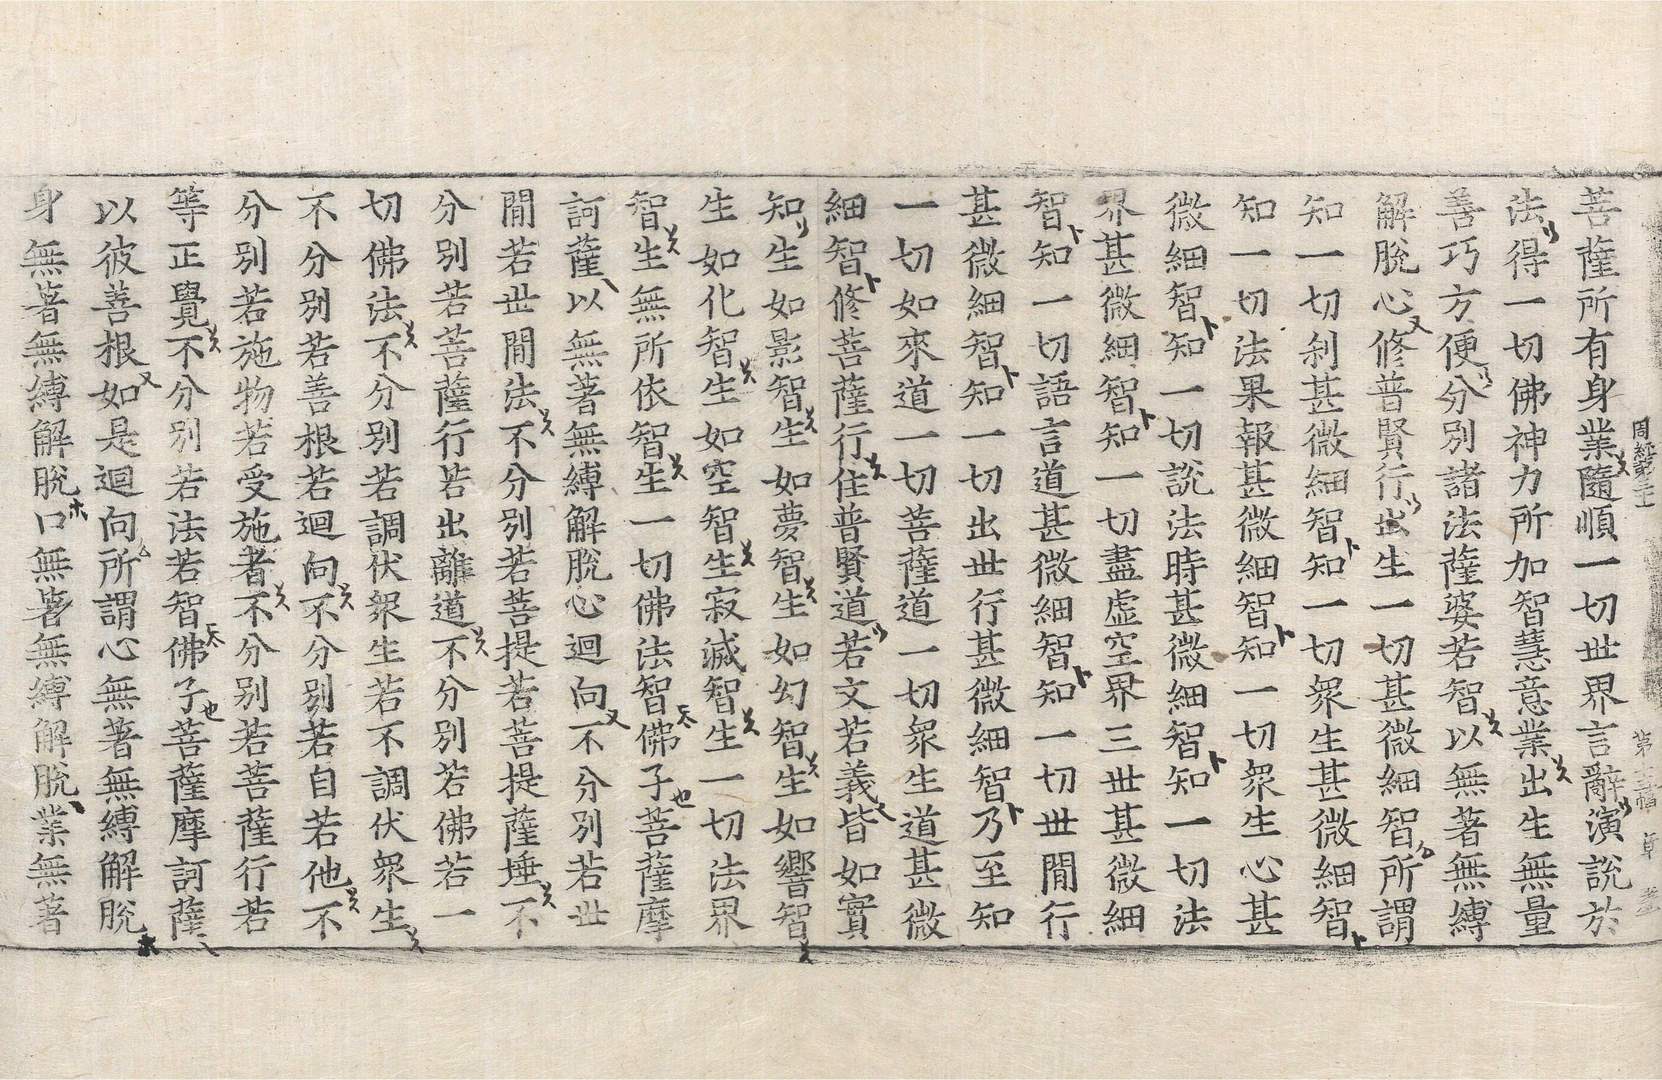 菩薩所有身業隨順一切世界言辭演說於
法得一切佛神力所加智慧意業出生無量
善巧方便分別諸法薩婆若智以無著無縛
解脫心修普賢行出生一切甚微細智所謂
知一切刹甚微細智知一切衆生甚微細智
知一切法果報甚微細智知一切衆生心甚
微細智知一切說法時甚微細智知一切法
界甚微細智知一切盡虛空界三世甚微細
智知一切語言道甚微細智知一切世間行
甚微細智知一切出世行甚微細智乃至知
一切如來道一切菩薩道一切衆生道甚微
細智修菩薩行住普賢道若文若義皆如實
知生如影智生如夢智生如幻智生如響智
生如化智生如空智生寂滅智生一切法界
智生無所依智生一切佛法智佛子菩薩摩
訶薩以無著無縛解脫心迴向不分別若世
間若世間法不分別若菩提若菩提薩埵不
分別若菩薩行若出離道不分別若佛若一
切佛法不分別若調伏衆生若不調伏衆生
不分別若善根若迴向不分別若自若他不
分別若施物若受施者不分別若菩薩行若
等正覺不分別若法若智佛子菩薩摩訶薩
以彼善根如是迴向所謂心無著無縛解脫
身無著無縛解脫口無著無縛解脫業無著